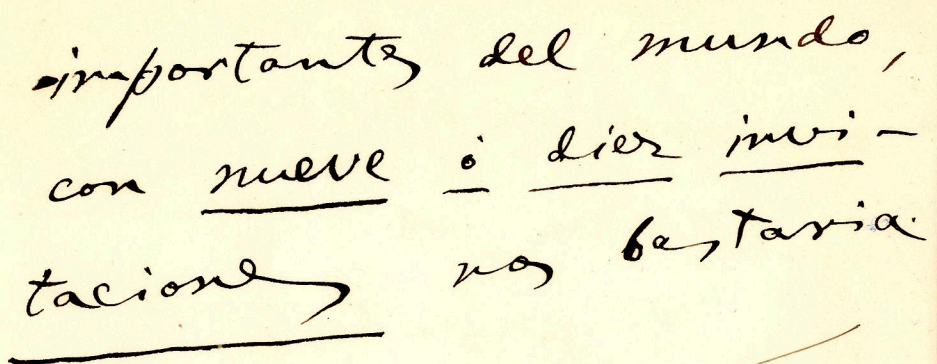 importantes del mundo,
con nueve ó diez invi-
taciones nos bastaria.